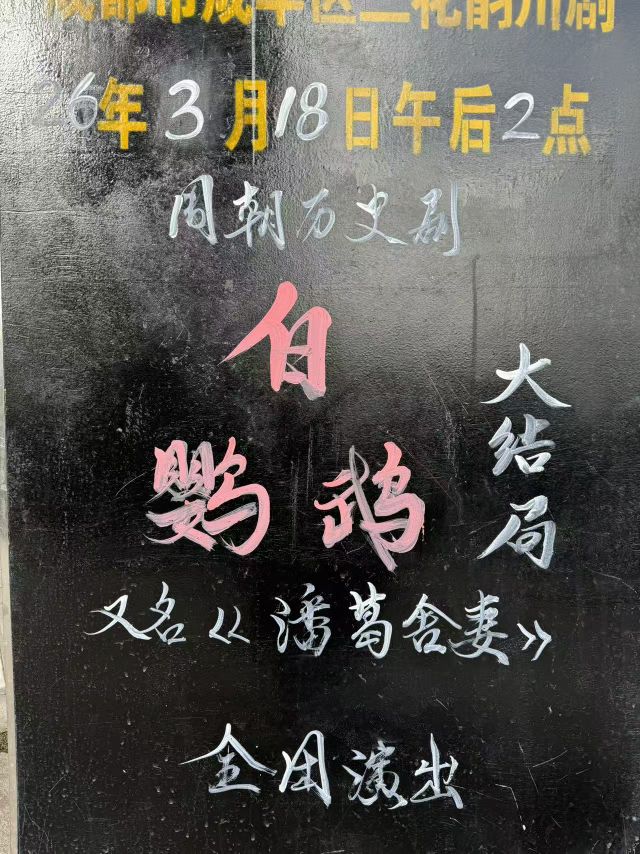 成都市成华区三花韵川剧
26年3月18日午后2点
周朝历史剧
白
鹦鹉
大结局
又名《潘葛舍妻》
全团演出